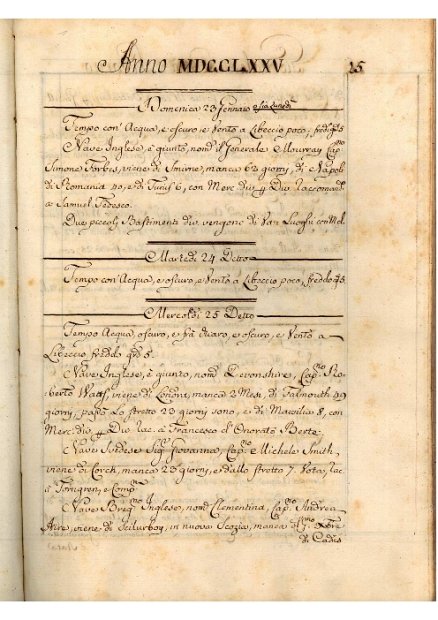 Anno MDCCLXXV 25
Domenica 23 Gennaro e sia Lunedi
Tempo con Acqua, e oscuro, e Vento a Libeccio poco, freddo 5
Nave Inglese, è giunta, nomª il Generale Mourray Capº
Simone Forbis, viene di Smirne, manca 62 giorni, di Napoli
di Romania 40, e di Tunis 6, con Merc div
a Samuel Tedesco.
Due piccoli Bastimenti div vengono di Vari Luoghi con Mol
Martedi 24 Detto
Tempo con Acqua, e oscuro, e Vento a Libeccio poco, freddo 5
Mercoldi 25 Detto
Tempo Acqua, oscuro, e fra di raro, e oscuro, e Vento a
Libeccio freddo 5
Nave Inglese, è giunta, nomª Devonshire, Capº Ro
berto Watts, viene di Londra, manca 2 Mesi, di Falmouth 49
giorni, passò Lo stretto 23 giorni sono, e di Marsilia 8, con
Merc. div Rac. a Francesco d'Onorato Berte
Nave Svedese Giovanna, Capº Michele Smith,
viene di Corck, manca 23 giorni, e dallo stretto 7. Vota, rac
a Torngren, e Compⁱ
Nave Inglese, nomª Clementina, Capº Andrea
Aire, viene di in nuova Scozia, manca
di Cadis